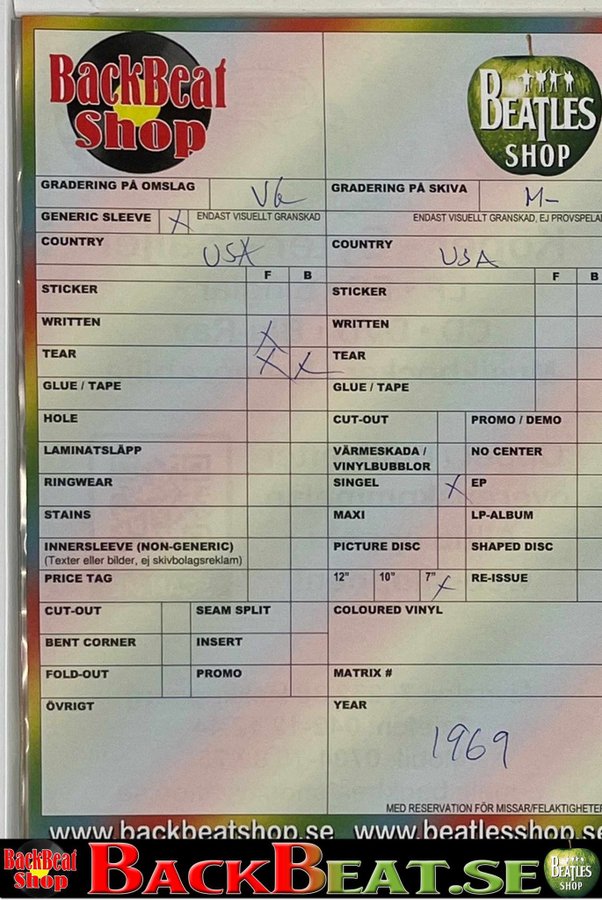 BackBeat
Shop
BEATLES
SHOP
GRADERING PÅ OMSLAG VG
GRADERING PÅ SKIVA M-
GENERIC SLEEVE X ENDAST VISUELLT GRANSKAD
ENDAST VISUELLT GRANSKAD, EJ PROVSPELA
COUNTRY USA
COUNTRY USA
F B
F B
STICKER
STICKER
WRITTEN X
WRITTEN
TEAR X X
TEAR
GLUE / TAPE
GLUE / TAPE
HOLE
CUT-OUT PROMO / DEMO
LAMINATSLÄPP
VÄRMESKADA /
VINYLBUBBLOR
NO CENTER
RINGWEAR
SINGEL X EP
STAINS
MAXI LP-ALBUM
INNERSLEEVE (NON-GENERIC)
(Texter eller bilder, ej skivbolagsreklam)
PICTURE DISC SHAPED DISC
PRICE TAG
12" 10" 7" X RE-ISSUE
CUT-OUT SEAM SPLIT
COLOURED VINYL
BENT CORNER INSERT
FOLD-OUT PROMO
MATRIX #
ÖVRIGT
YEAR
1969
MED RESERVATION FÖR MISSAR/FELAKTIGHETER
www.backbeatshop.se www.beatlesshop.se
BackBeat
Shop
BACKBEAT.SE
BEATLES
SHOP